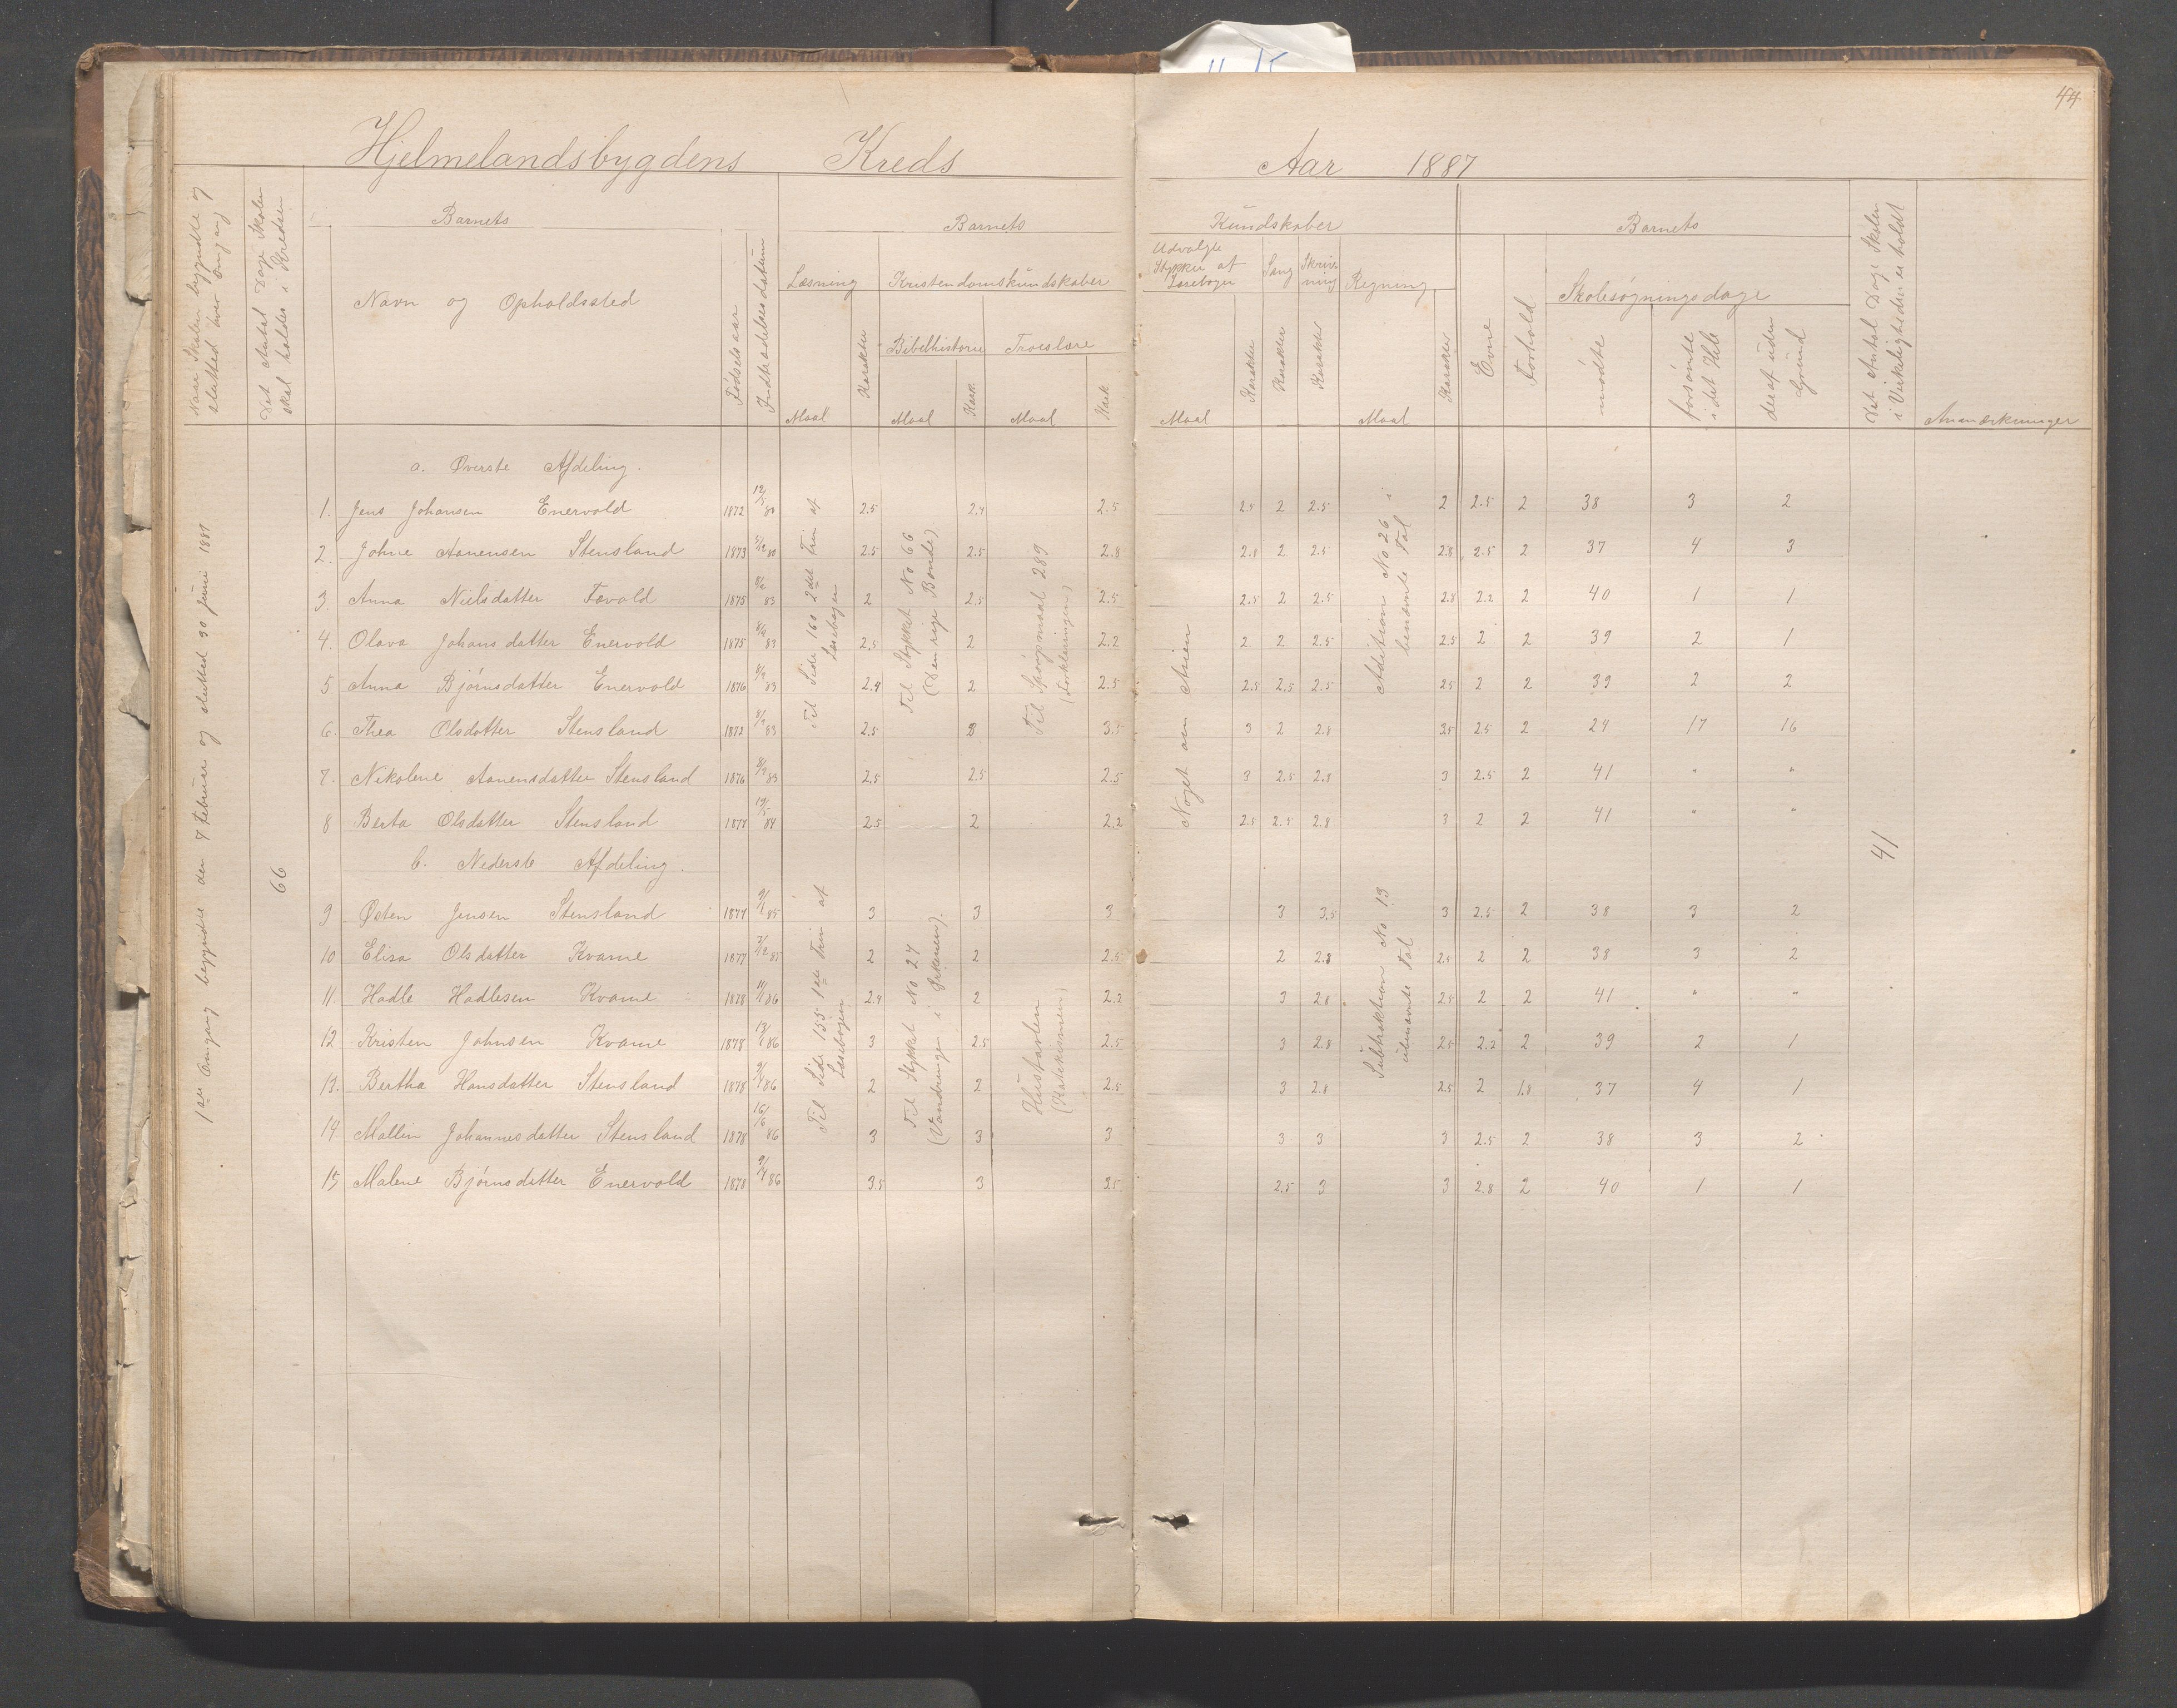 44
Hjelmelandsbygdens Kreds Aar 1887
Naar Skolen begyndte og slutted hver Omgang
Det Antal Dage Skolen skal holdes i Kredsen
Barnets
Navn og Opholdssted
Fødselsaar
Indtrædelsesdatum
Barnets Kundskaber
Læsning
Maal
Karakter
Kristendomskundskaber
Bibelhistorie
Maal
Kark.
Troeslære
Maal
Kark
Udvalgte Stykker af Læsebogen
Maal
Karakter
Sang
Karakter
Skrivning
Karakter
Regning
Maal
Karakter
Barnets
Evne
Forhold
Skolesøgningsdage
mødte
forsømte i det Hele
deraf uden Grund
Det Antal Dage Skolen i Virkeligheden er holdt
Anmærkninger
1ste Omgang begyndte den 7 Februar og slutted 30 Juni 1887
66
a. Øverste Afdeling.
Til Side 160 2det Trin af Læsebogen
Til Stykket No 66 (Den rige Bonde)
Til Spørgsmaal 289 (Forklaringen)
Noget om Asien
Addition No 26 i benævnte Tal
1. Jens Johansen Enervold 1872 12/5 80 2.5 2.4 2.5 2.5 2 2.5 2 2.5 2 38 3 2
2. Johne Aanensen Stensland 1873 5/12 80 2.5 2.5 2.8 2.8 2 2.5 2.8 2.5 2 37 4 3
3. Anna Nielsdatter Fævold 1875 83 2 2.5 2.5 2.5 2 2.5 2.8 2.2 2 40 1 1
4. Olava Johansdatter Enervold 1875 83 2.5 2 2.2 2 2 2.5 2.5 2 2 39 2 1
5 Anna Bjørnsdatter Enervold 1876 8/9 83 2.4 2 2.5 2.5 2.5 2.5 2.5 2 2 39 2 2
6. Thea Olsdatter Stensland 1873 8/9 83 2.5 3 3.5 3 2 2.8 3.5 2.5 2 24 17 16
7. Nikolene Aanensdatter Stensland 1876 8/9 83 2.5 2.5 2.5 3 2.5 2.8 3 2.5 2 41 " "
8 Berta Olsdatter Stensland 1877 19/5 84 2.5 2 2.2 2.5 2.5 2.8 3 2 2 41 " "
41
b. Nederste Afdeling.
Til Side 155 1ste Trin af Læsebogen
Til Stykket No 24 (Vandringen i Ørkenen).
Hustavlen (Katekismen)
Subtraktion No 13 ubenævnte Tal
9 Østen Jensen Stensland 1877 9/1 85 3 3 3 3 3.5 3 2.5 2 38 3 2
10 Elisa Olsdatter Kvame 1877 7/12 85 2 2 2.5 2 2.8 2.5 2 2 38 3 2
11. Hadle Hadlesen Kvame 1878 11/1 86 2.4 2 2.2 3 2.8 2.5 2 2 41 " "
12 Kristen Johnsen Kvame 1878 13/1 86 3 2.5 2.5 3 2.8 2.5 2.2 2 39 2 1
13. Bertha Hansdatter Stensland 1878 9/4 86 2 2 2.5 3 2.8 2.5 2 1.8 37 4 1
14. Mallin Johannesdatter Stensland 1878 16/6 86 3 3 3 3 3 3 2.5 2 38 3 2
15 Malene Bjørnsdatter Enervold 1878 9/4 86 3.5 3 3.5 2.5 3 3 2.8 2 40 1 1